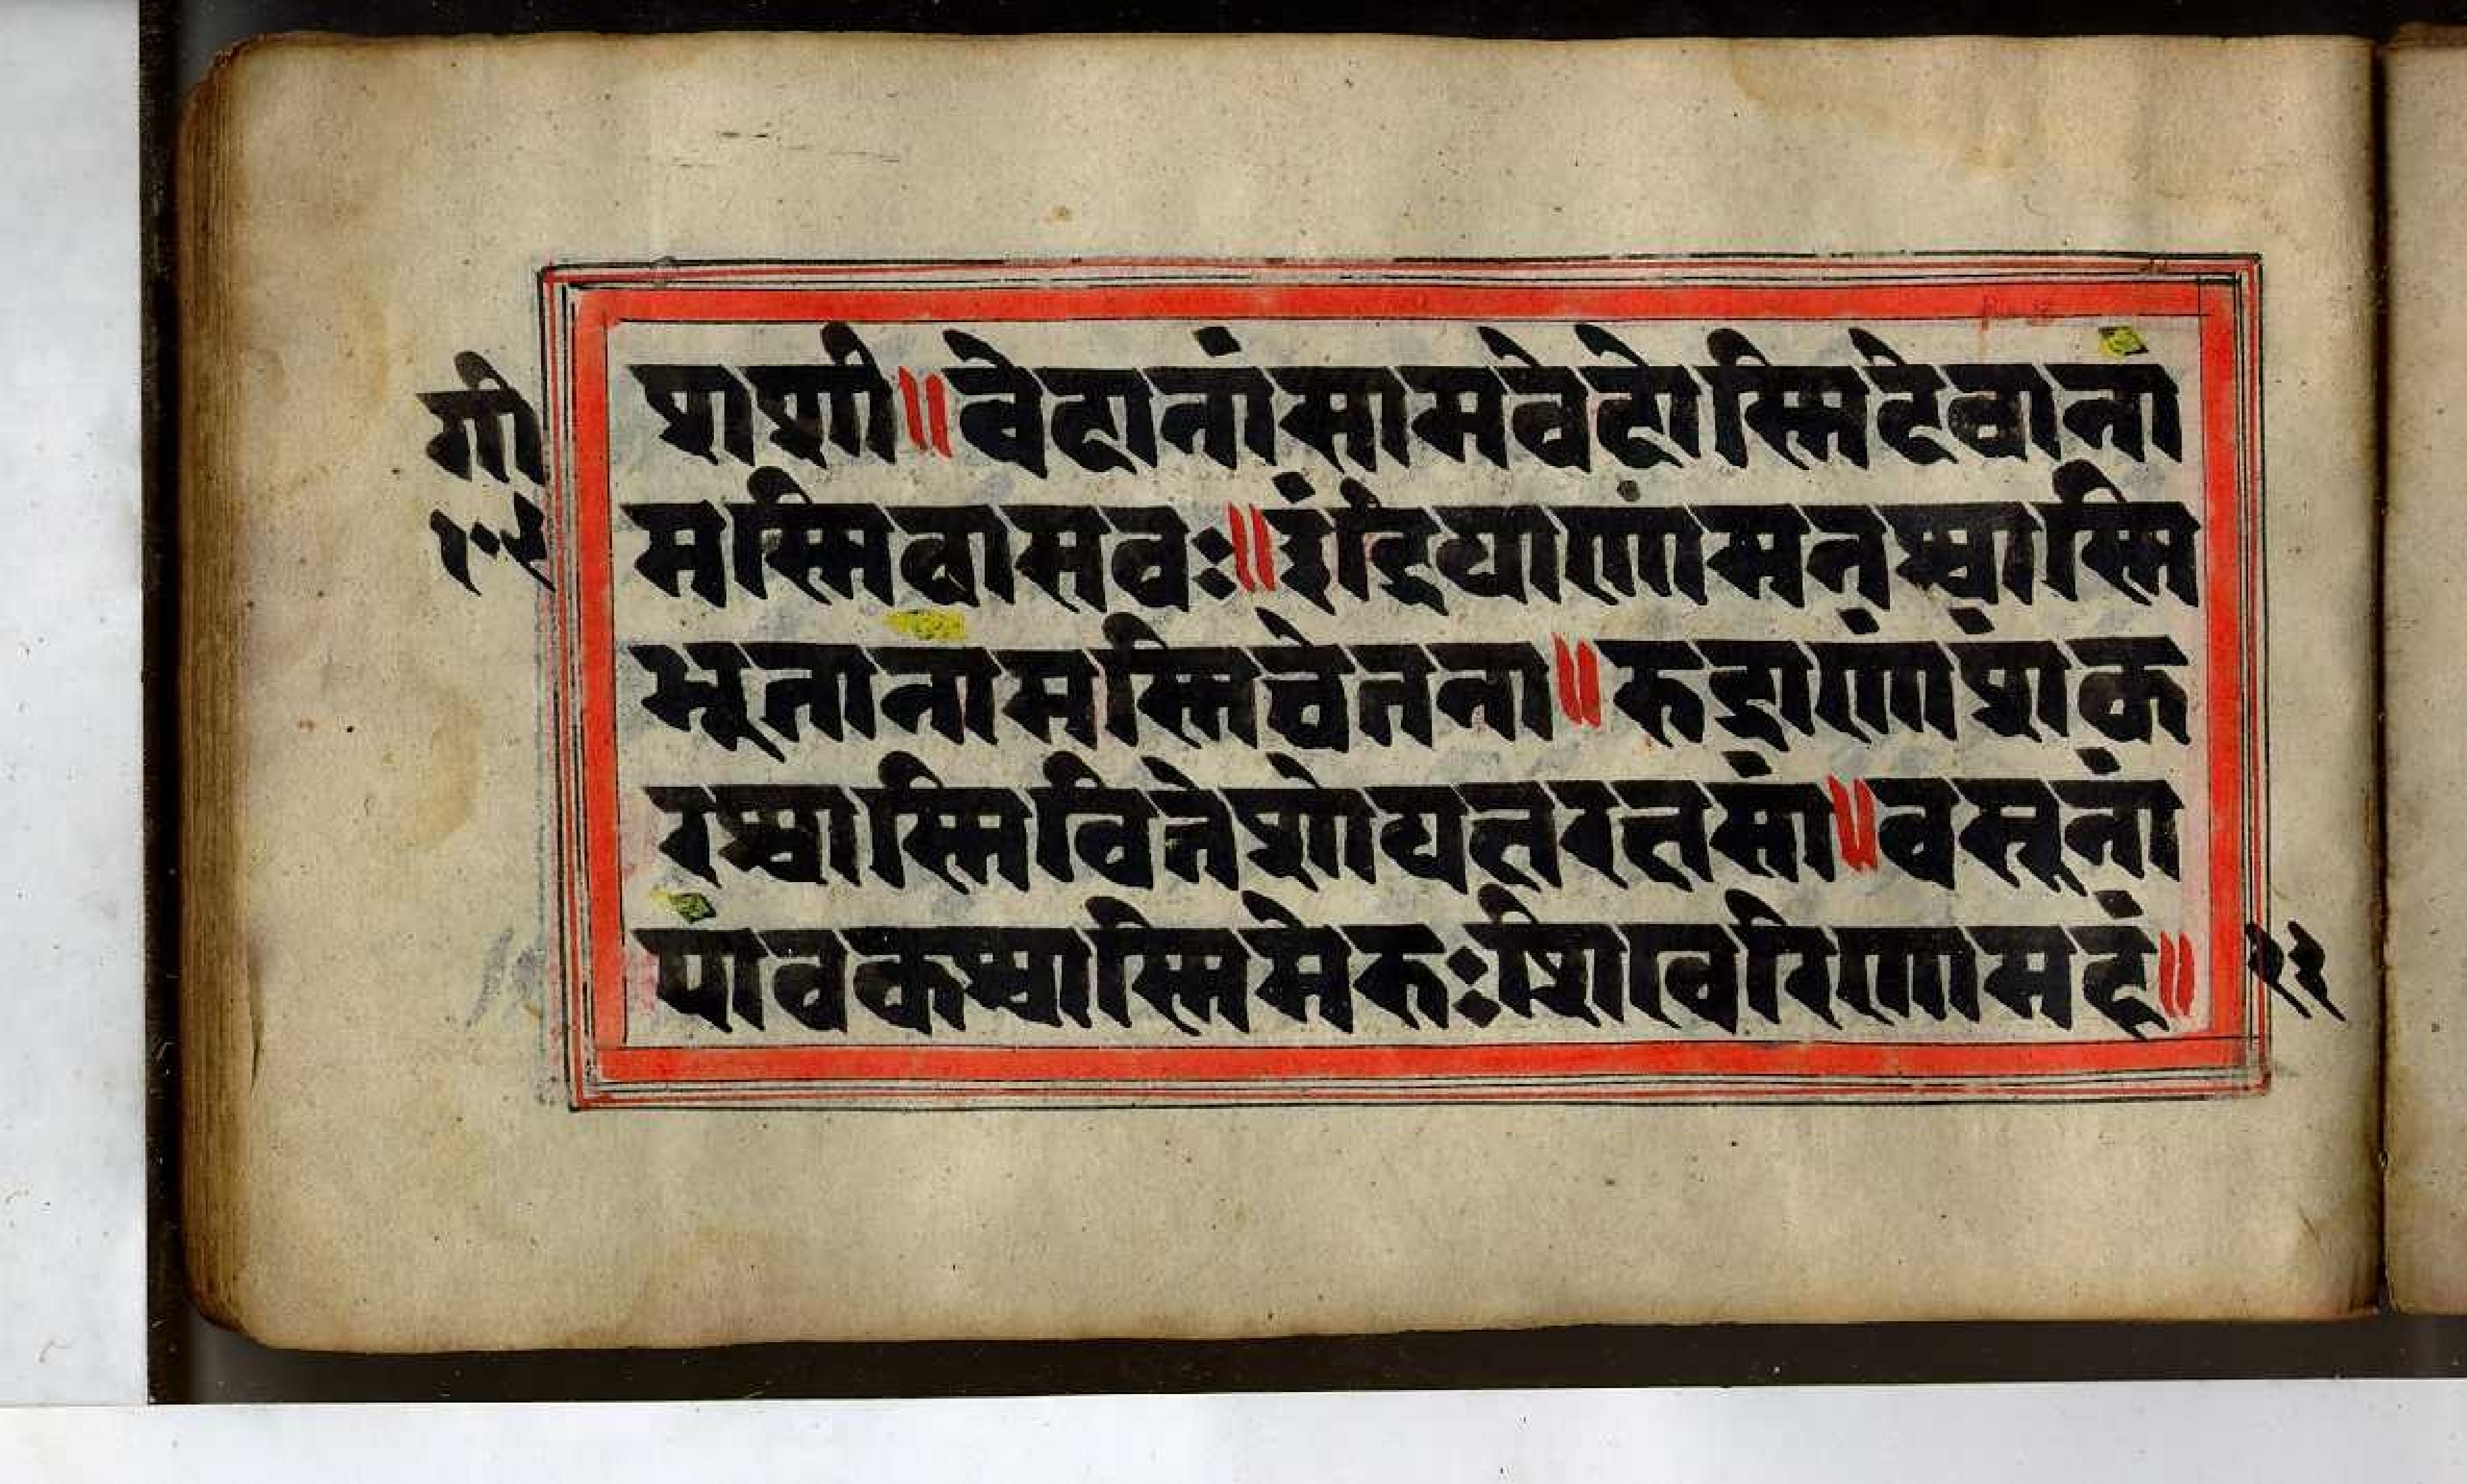 गी
१०९
शशी॥वेदानांसामवेदोस्मिदेवाना
मस्मिवासवः॥इंद्रियाणांमनश्चास्मि
भूतानामस्मिचेतना॥रुद्राणांशंक
रश्चास्मिवित्तेशोयक्षरक्षसां॥वसूनां
पावकश्चास्मिमेरुःशिखरिणामहं॥
२३